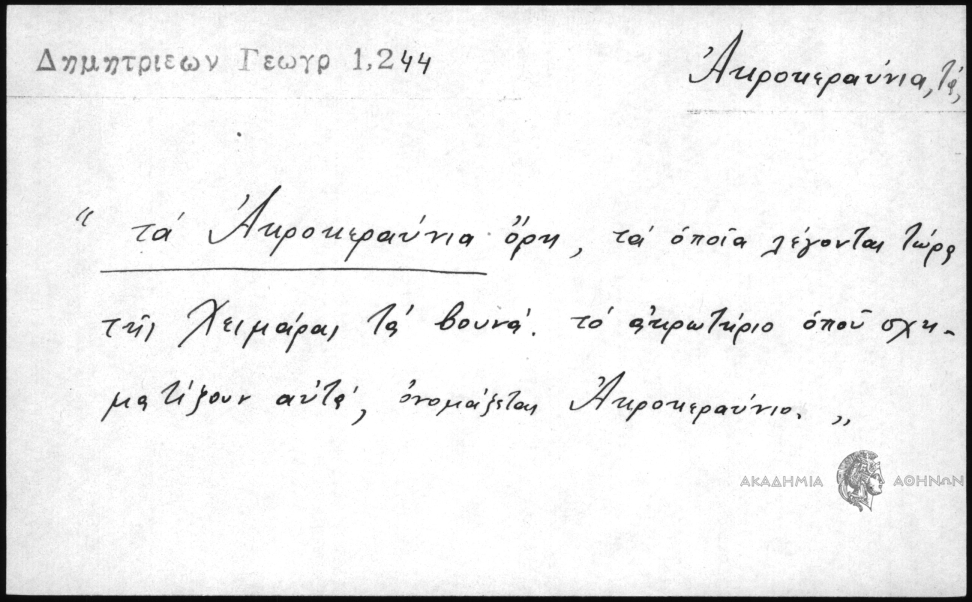 Δημητριεων Γεωγρ 1,244
Ἀκροκεραύνια, τά,
“ τά Ἀκροκεραύνια ὄρη, τά ὁποῖα λέγονται τώρα
τῆς Χειμάρας τά βουνά. τό ἀκρωτήριο ὁποῦ σχη-
ματίζουν αὐτά, ὀνομάζεται Ἀκροκεραύνιο. „
ΑΚΑΔΗΜΙΑ ΑΘΗΝΩΝ